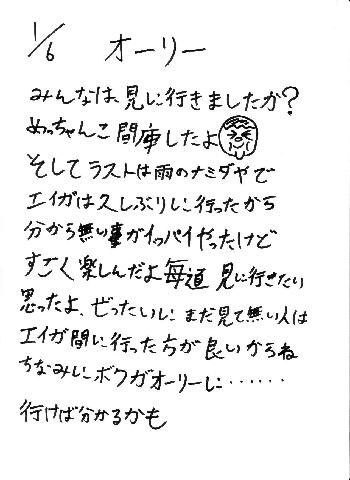 1/6 オーリー
みんなは、見に行きましたか?
めっちゃんこ間庫したよ
そしてラストは雨のナミダやで
エイガは久しぶりに行ったから
分から無い事がイッパイやったけど
すごく楽しんだよ毎道 見に行きたい
思ったよ、ぜったいに まだ見て無い人は
エイガ間に行った方が良いからね
ちなみにボクガオーリーに……
行けば分かるかも